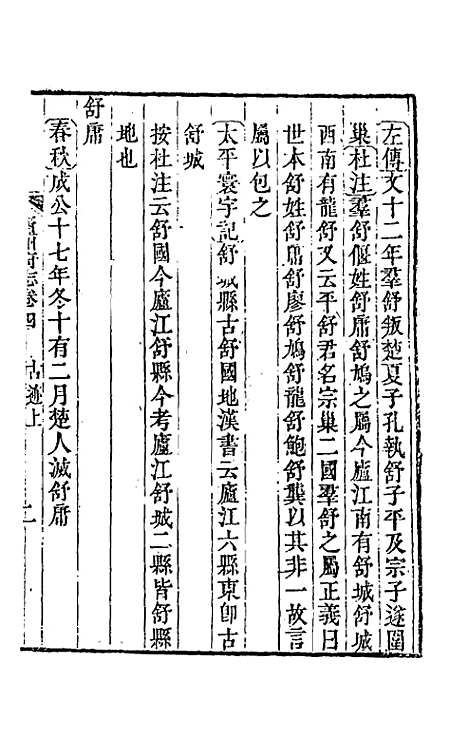 左傳文十二年羣舒叛楚夏子孔執舒子平及宗子遂圍
巢杜注羣舒偃姓舒庸舒鳩之屬今廬江南有舒城舒城
西南有龍舒又云平舒君名宗巢二國羣舒之屬正義曰
世本舒姓舒庸舒廖舒鳩舒龍舒鮑舒龔以其非一故言
屬以包之
太平寰宇記舒城縣古舒國地漢書云廬江六縣東卽古
舒城
按杜注云舒國今廬江舒縣今考廬江舒城二縣皆舒縣
地也
舒庸
春秋成公十七年冬十有二月楚人滅舒庸
府志卷四 古蹟上